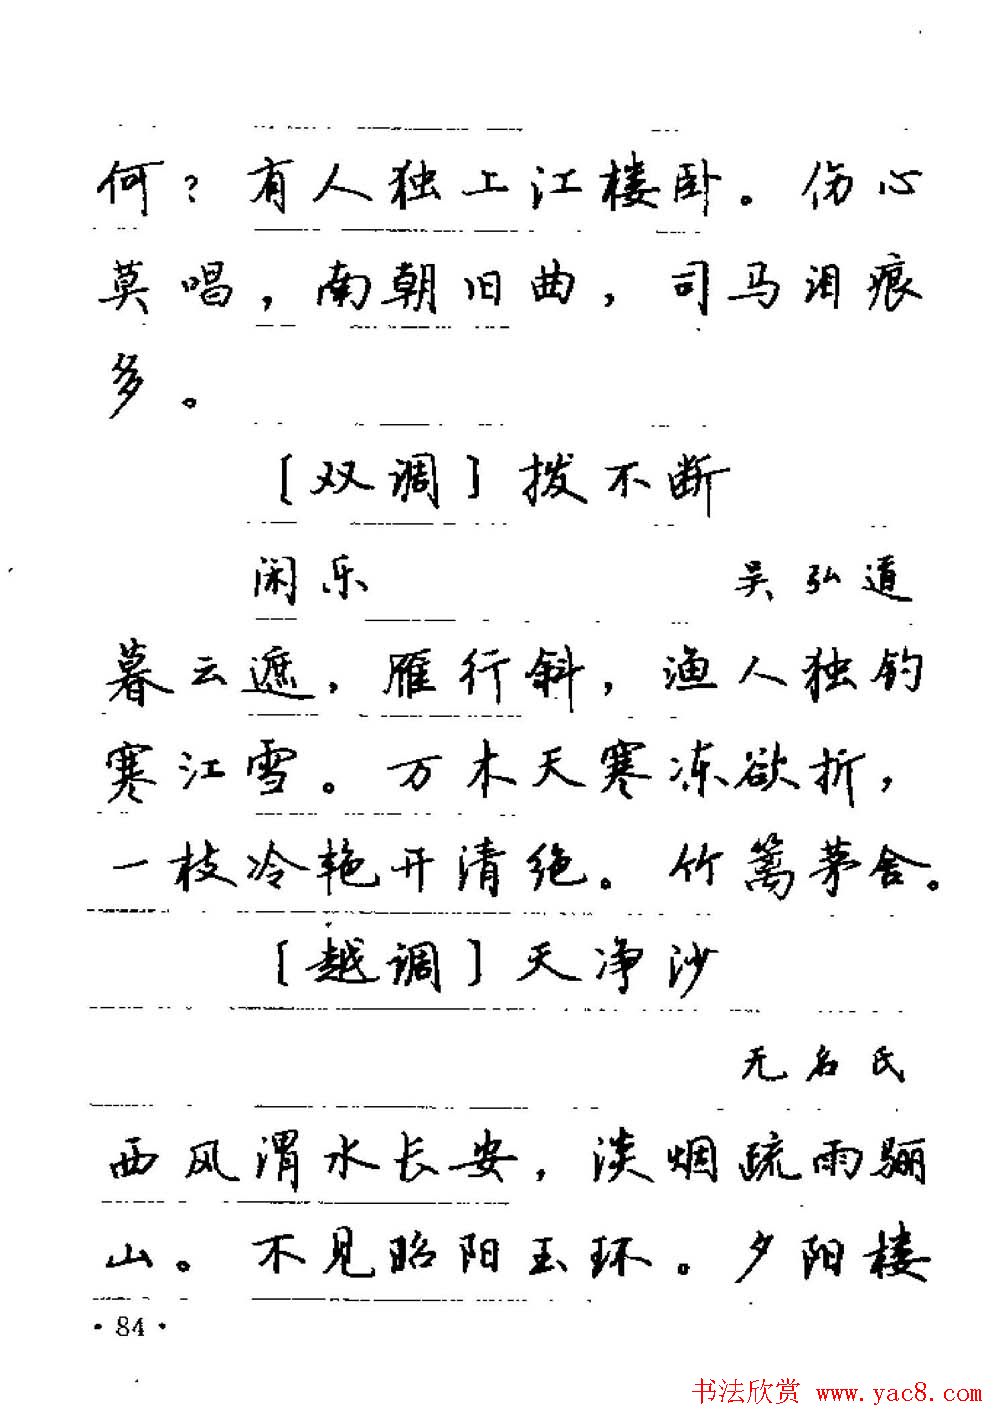 何？有人独上江楼卧。伤心
莫唱，南朝旧曲，司马泪痕
多。
［双调］拨不断
闲乐 吴弘道
暮云遮，雁行斜，渔人独钓
寒江雪。万木天寒冻欲折，
一枝冷艳开清绝。竹篱茅舍。
［越调］天净沙
无名氏
西风渭水长安，淡烟疏雨骊
山。不见昭阳玉环。夕阳楼
·84·
书法欣赏 www.yac8.com